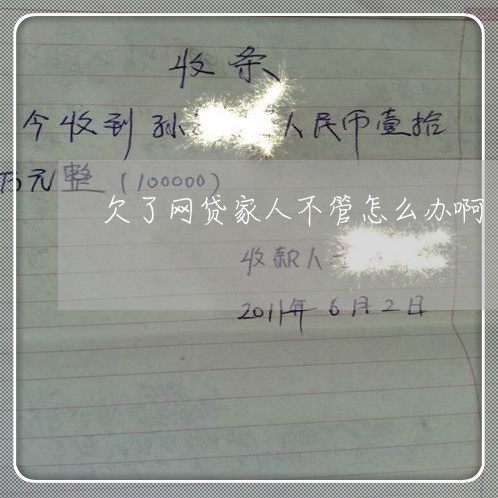 收条
今收到孙 人民币壹拾
万元整(100000)
欠了网贷家人不管怎么办啊
收款人
2011年6月2日